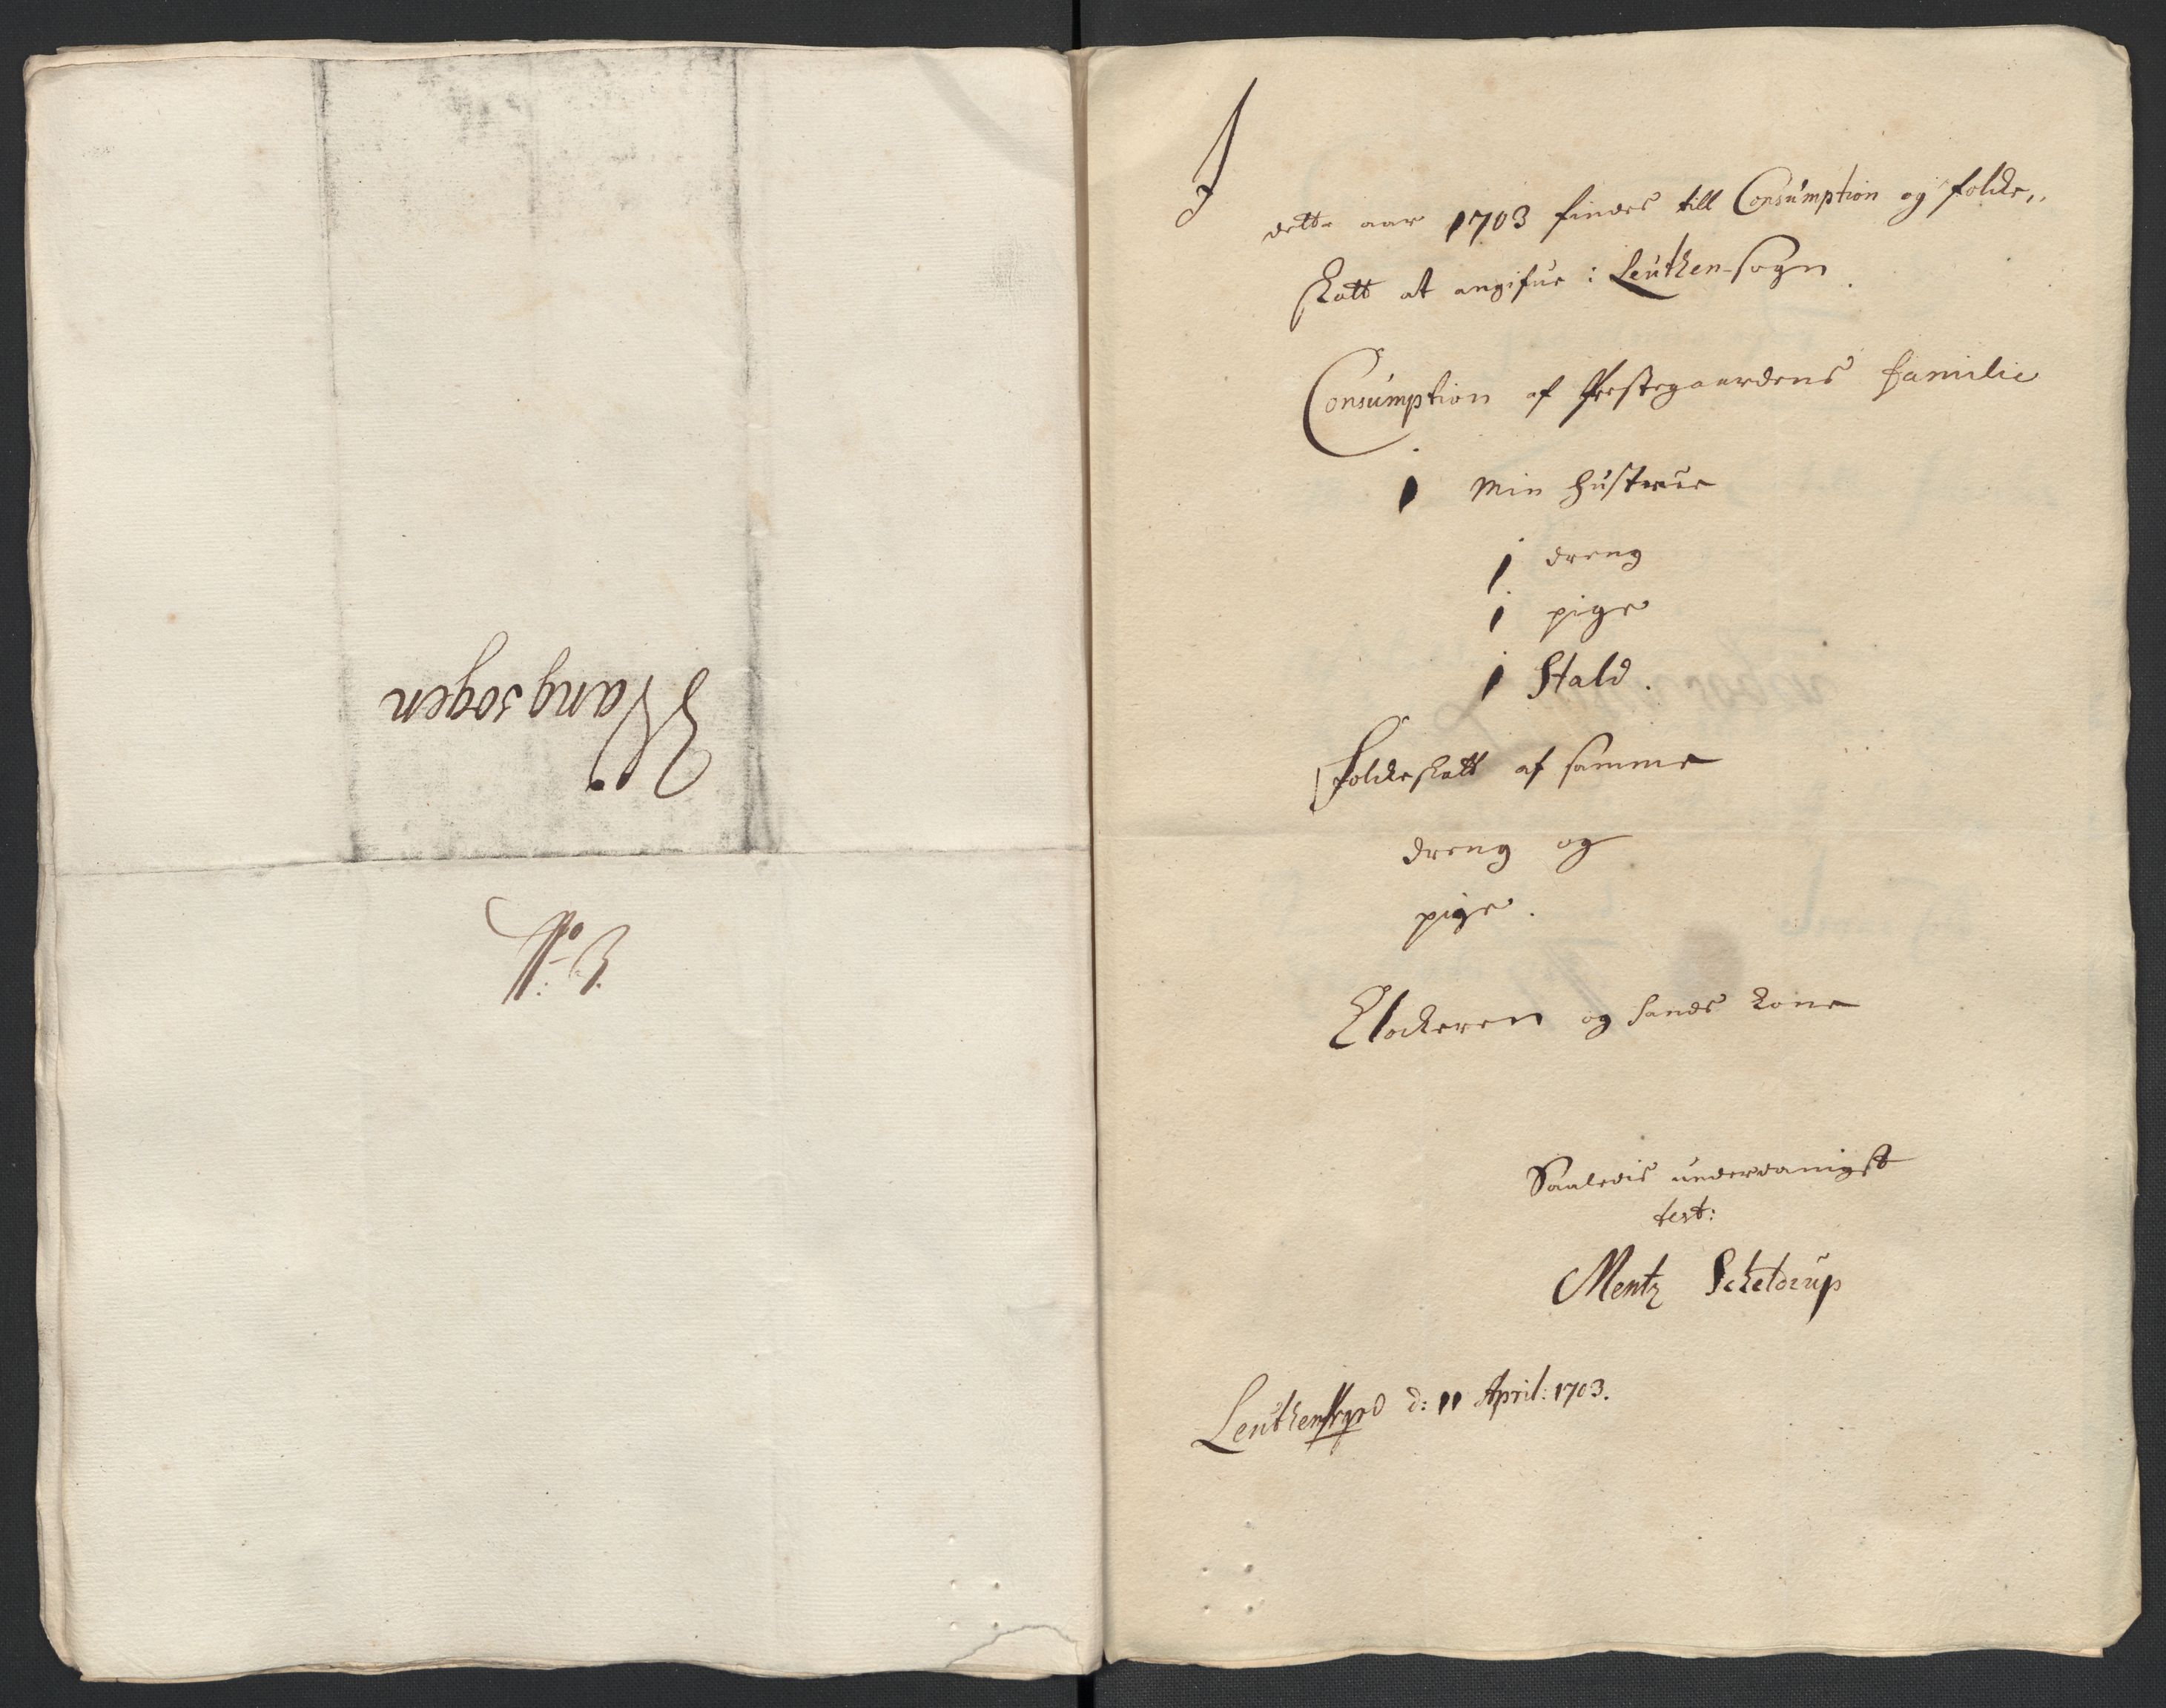 Wangsogen
No: 3.
I
dette aar 1703 findes till Consumption og folke„
skatt at angifue: Leuthen-sogn.
Consumption af Prestegaardens familie
1 Min hustrue
1 dreng
1 pige
1 Stald.
Folkeskatt af samme
dreng og
pige.
Klockeren og hands kone
Saaledis underdanigst
test:
Mentz Scheldrup
d: 11 April: 1703.